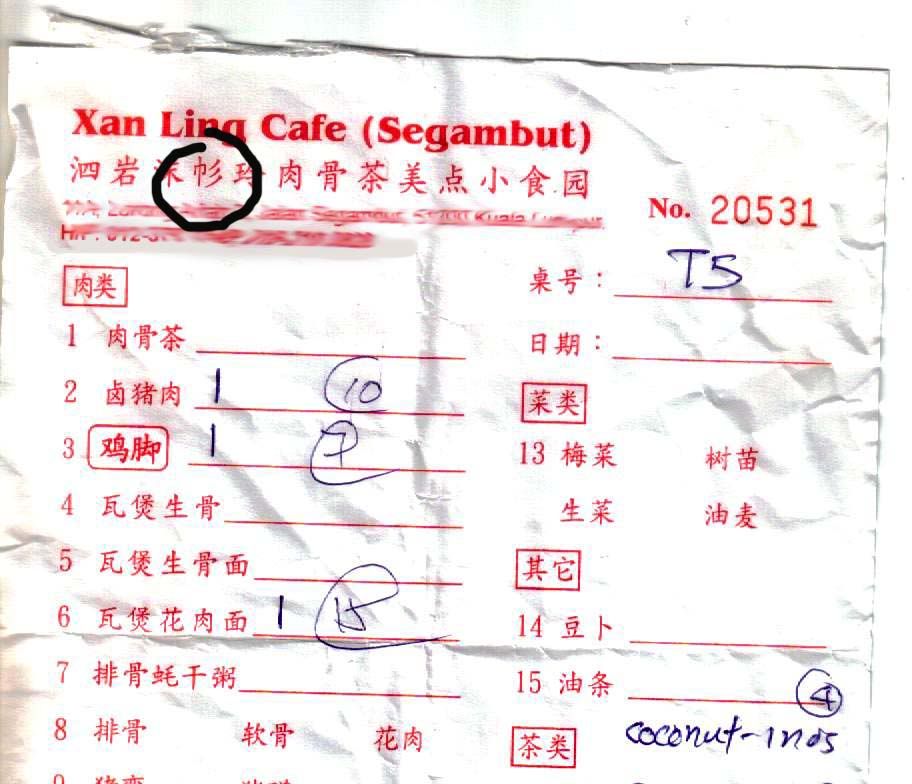 Xan Ling Cafe (Segambut)
泗岩沫㣌玲肉骨茶美点小食园
No. 20531
桌号： T5
肉类
1 肉骨茶
日期：
2 卤猪肉 1 10
菜类
3 鸡脚 1 7
13 梅菜 树苗
4 瓦煲生骨
生菜 油麦
5 瓦煲生骨面
其它
6 瓦煲花肉面 1 15
14 豆卜
7 排骨蚝干粥
15 油条 4
8 排骨 软骨 花肉
茶类
coconut-1nos